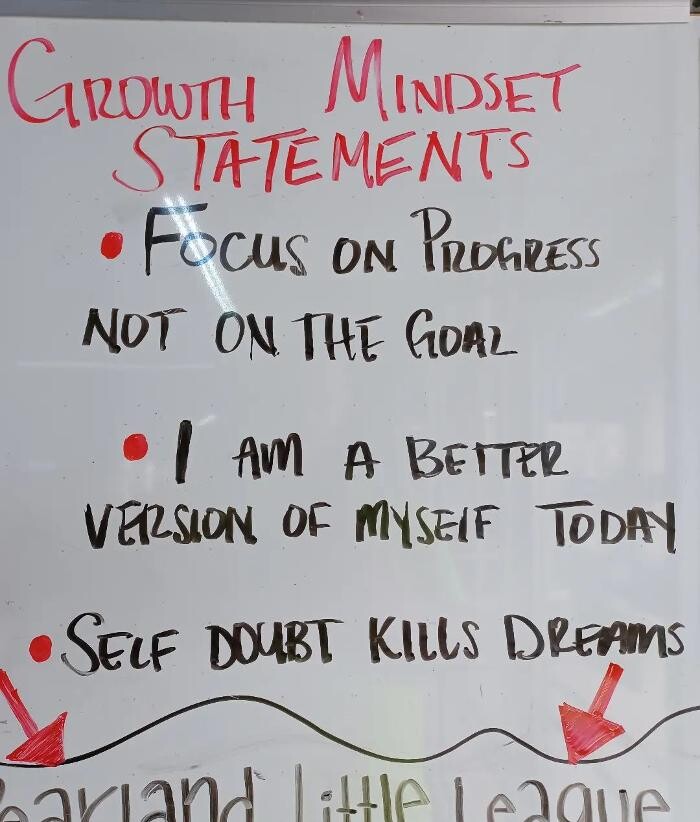 GROWTH MINDSET
STATEMENTS
• FOCUS ON PROGRESS
NOT ON THE GOAL
• I AM A BETTER
VERSION OF MYSELF TODAY
• SELF DOUBT KILLS DREAMS
Pearland Little League